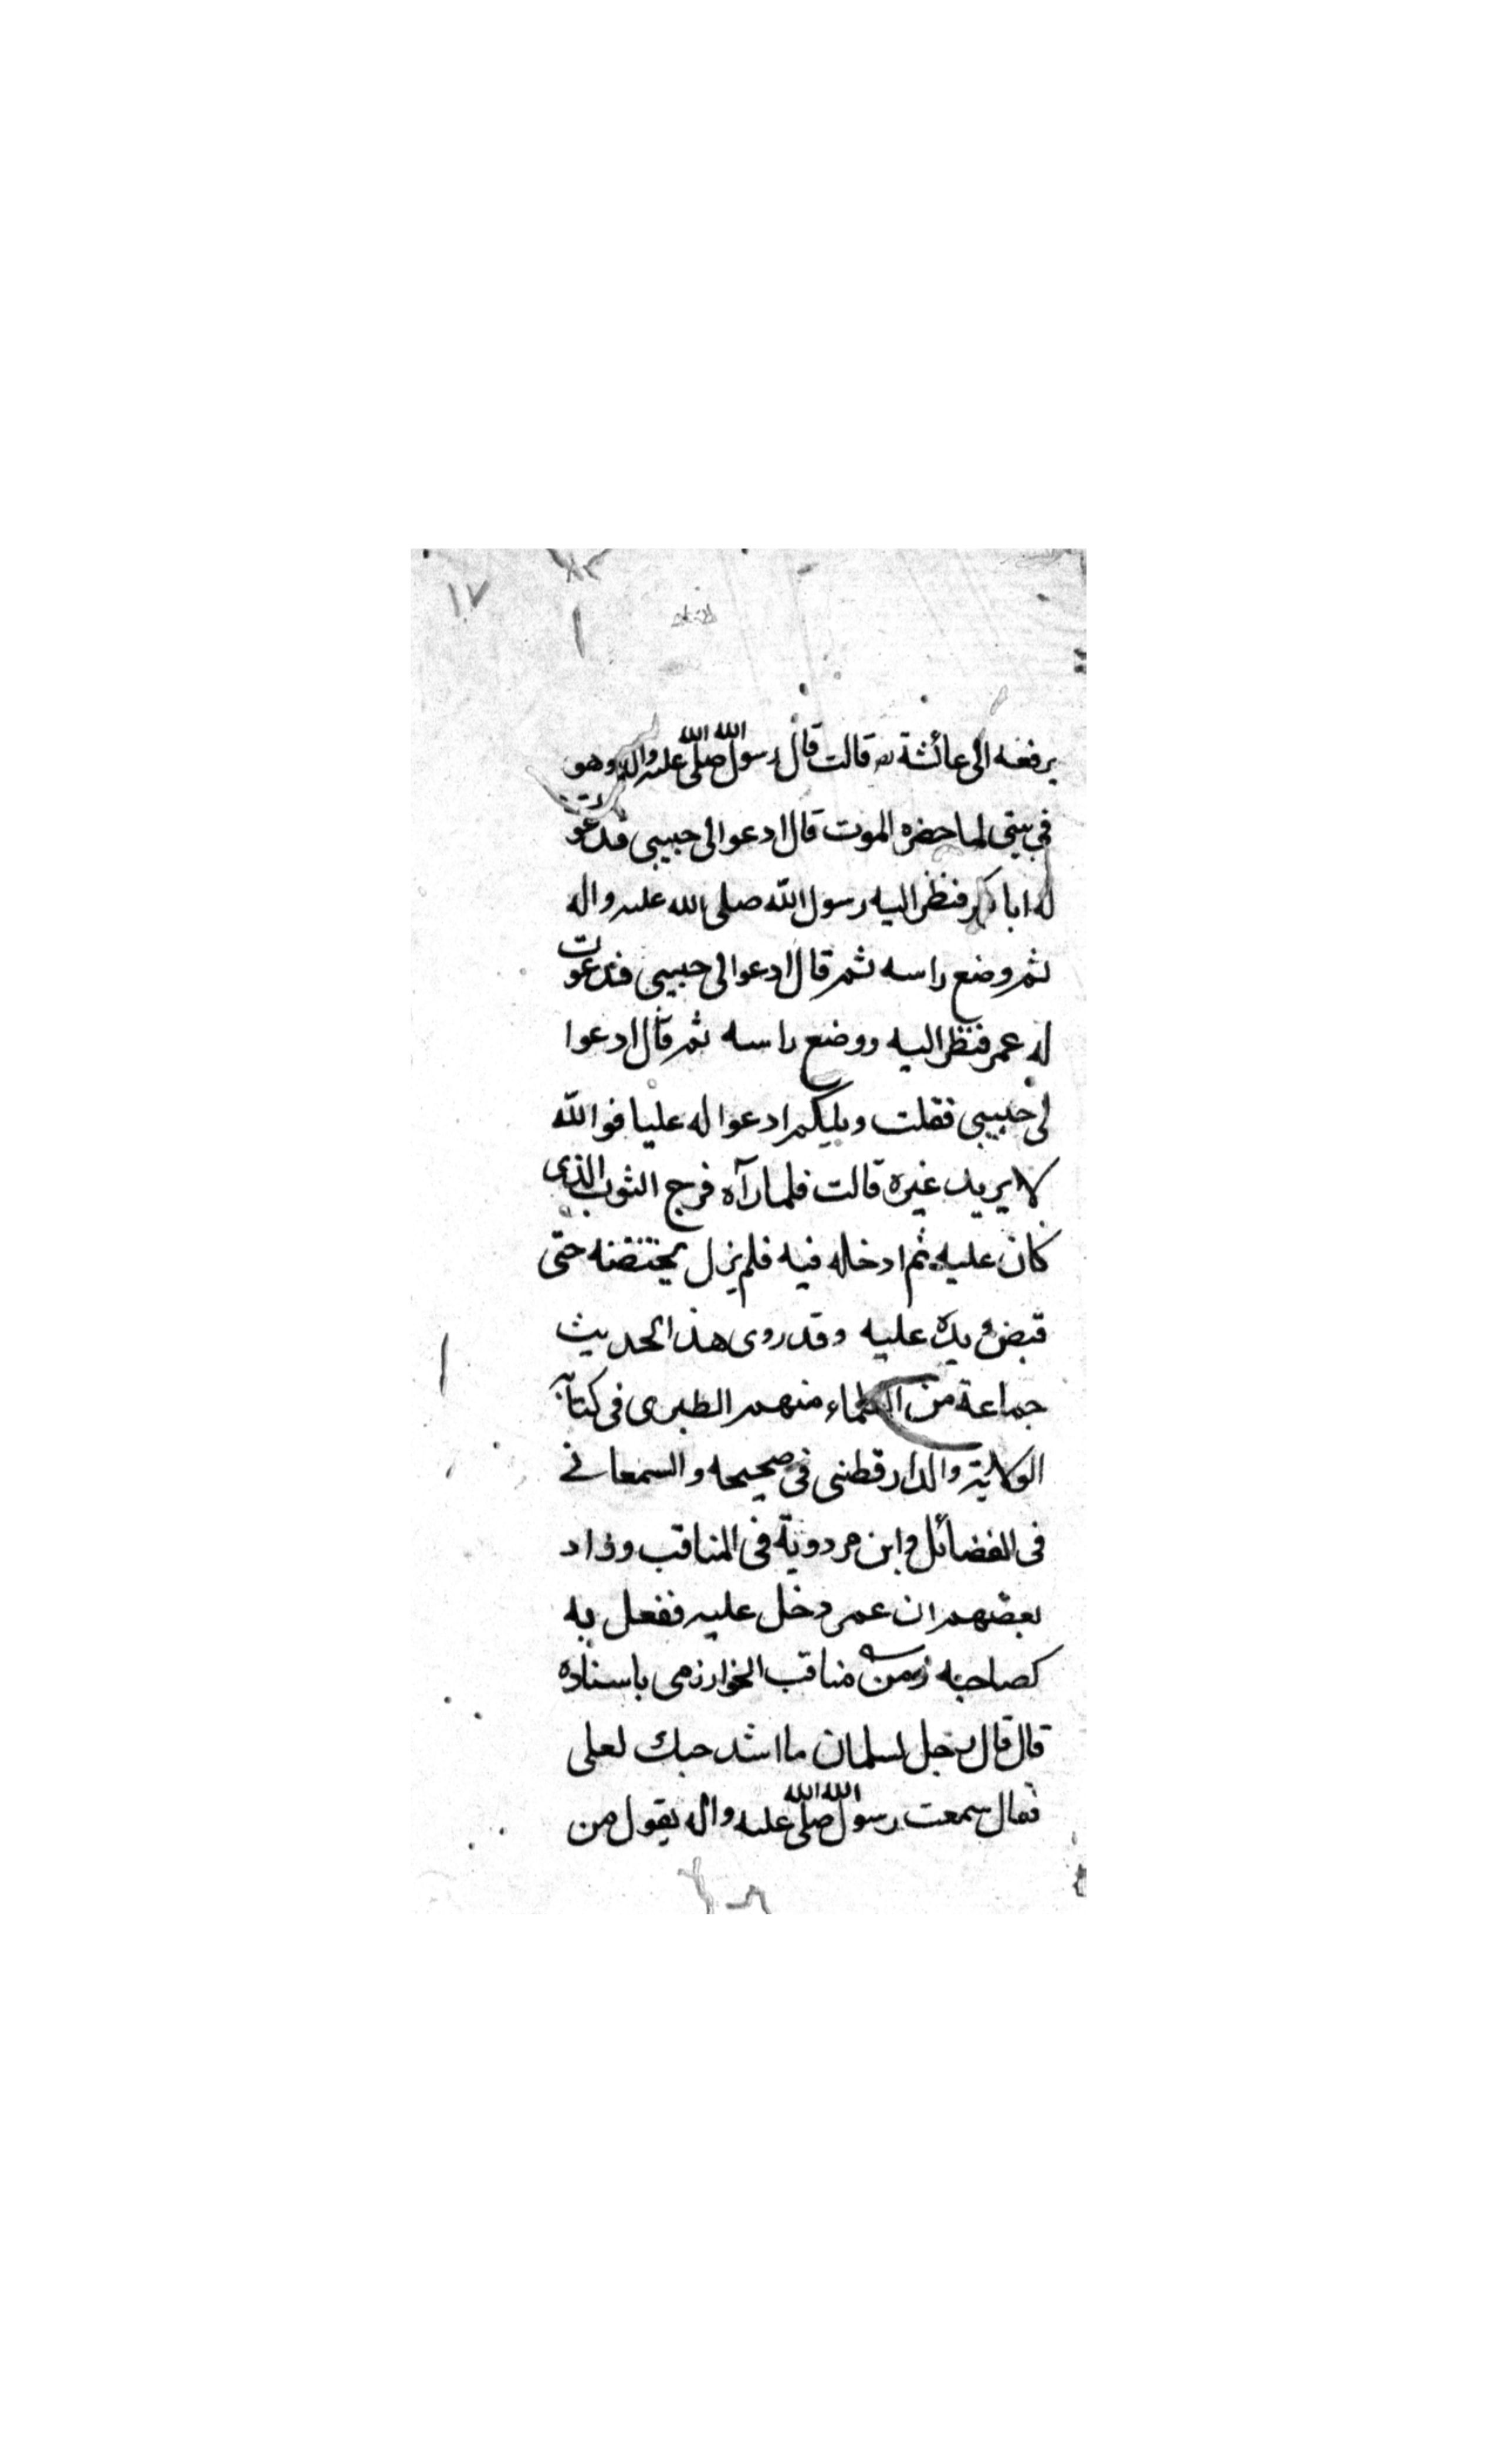 ١٧
يرفعه الى عائشة قالت قال رسول الله صلى الله عليه واله وهو
في بيتى لما حضره الموت قال ادعوا لى حبيبى فدعوت
له ابا بكر فنظر اليه رسول الله صلى الله عليه واله
ثم وضع راسه ثم قال ادعوا لى حبيبى فدعوت
له عمر فنظر اليه ووضع راسه ثم قال ادعوا
لى حبيبى فقلت ويليكم ادعوا له عليا فوالله
لا يريد غيره قالت فلما رآه فرج الثوب الذى
كان عليه ثم ادخله فيه فلم يزل يحتضنه حتى
قبض ويده عليه وقد روى هذا الحديث
جماعة من العلماء منهم الطبرى فى كتابه
الولاية والدارقطنى فى صحيحه والسمعانے
فى الفضائل وابن مردوية فى المناقب وزاد
بعضهم ان عمر دخل عليه ففعل به
كصاحبه ومن مناقب الخوارزمى باسناده
قال قال رجل لسلمان ما اشد حبك لعلى
فقال سمعت رسول الله صلى الله عليه واله يقول من